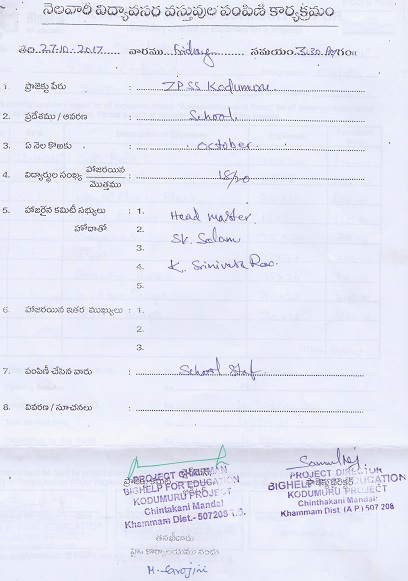 నెలవారీ విద్యావసర వస్తువుల పంపిణి కార్యక్రమం
తేది 27-10-2017 వారము Friday సమయం 3.30
1. ప్రాజెక్టు పేరు : ZPSS Kodumuru
2. ప్రదేశము / ఆవరణ : School
3. ఏ నెల కొఱకు : October
4. విద్యార్థుల సంఖ్య హాజరయిన / మొత్తము : 18/20
5. హాజరైన కమిటీ సభ్యులు : 1. Head master
హోదాతో 2. SK. Salam
3.
4. K. Srinivasa Rao
5.
6. హాజరయిన ఇతర ముఖ్యులు : 1.
2.
3.
7. పంపిణీ చేసిన వారు : School Staf
8. వివరణ / సూచనలు :
PROJECT CHAIRMAN
BIGHELP FOR EDUCATION
KODUMURU PROJECT
Chintakani Mandal
Khammam Dist.- 507208
PROJECT DIRECTOR
BIGHELP FOR EDUCATION
KODUMURU PROJECT
Chinthakani Mandal
Khammam Dist (A P) 507 208
M. Sarojini